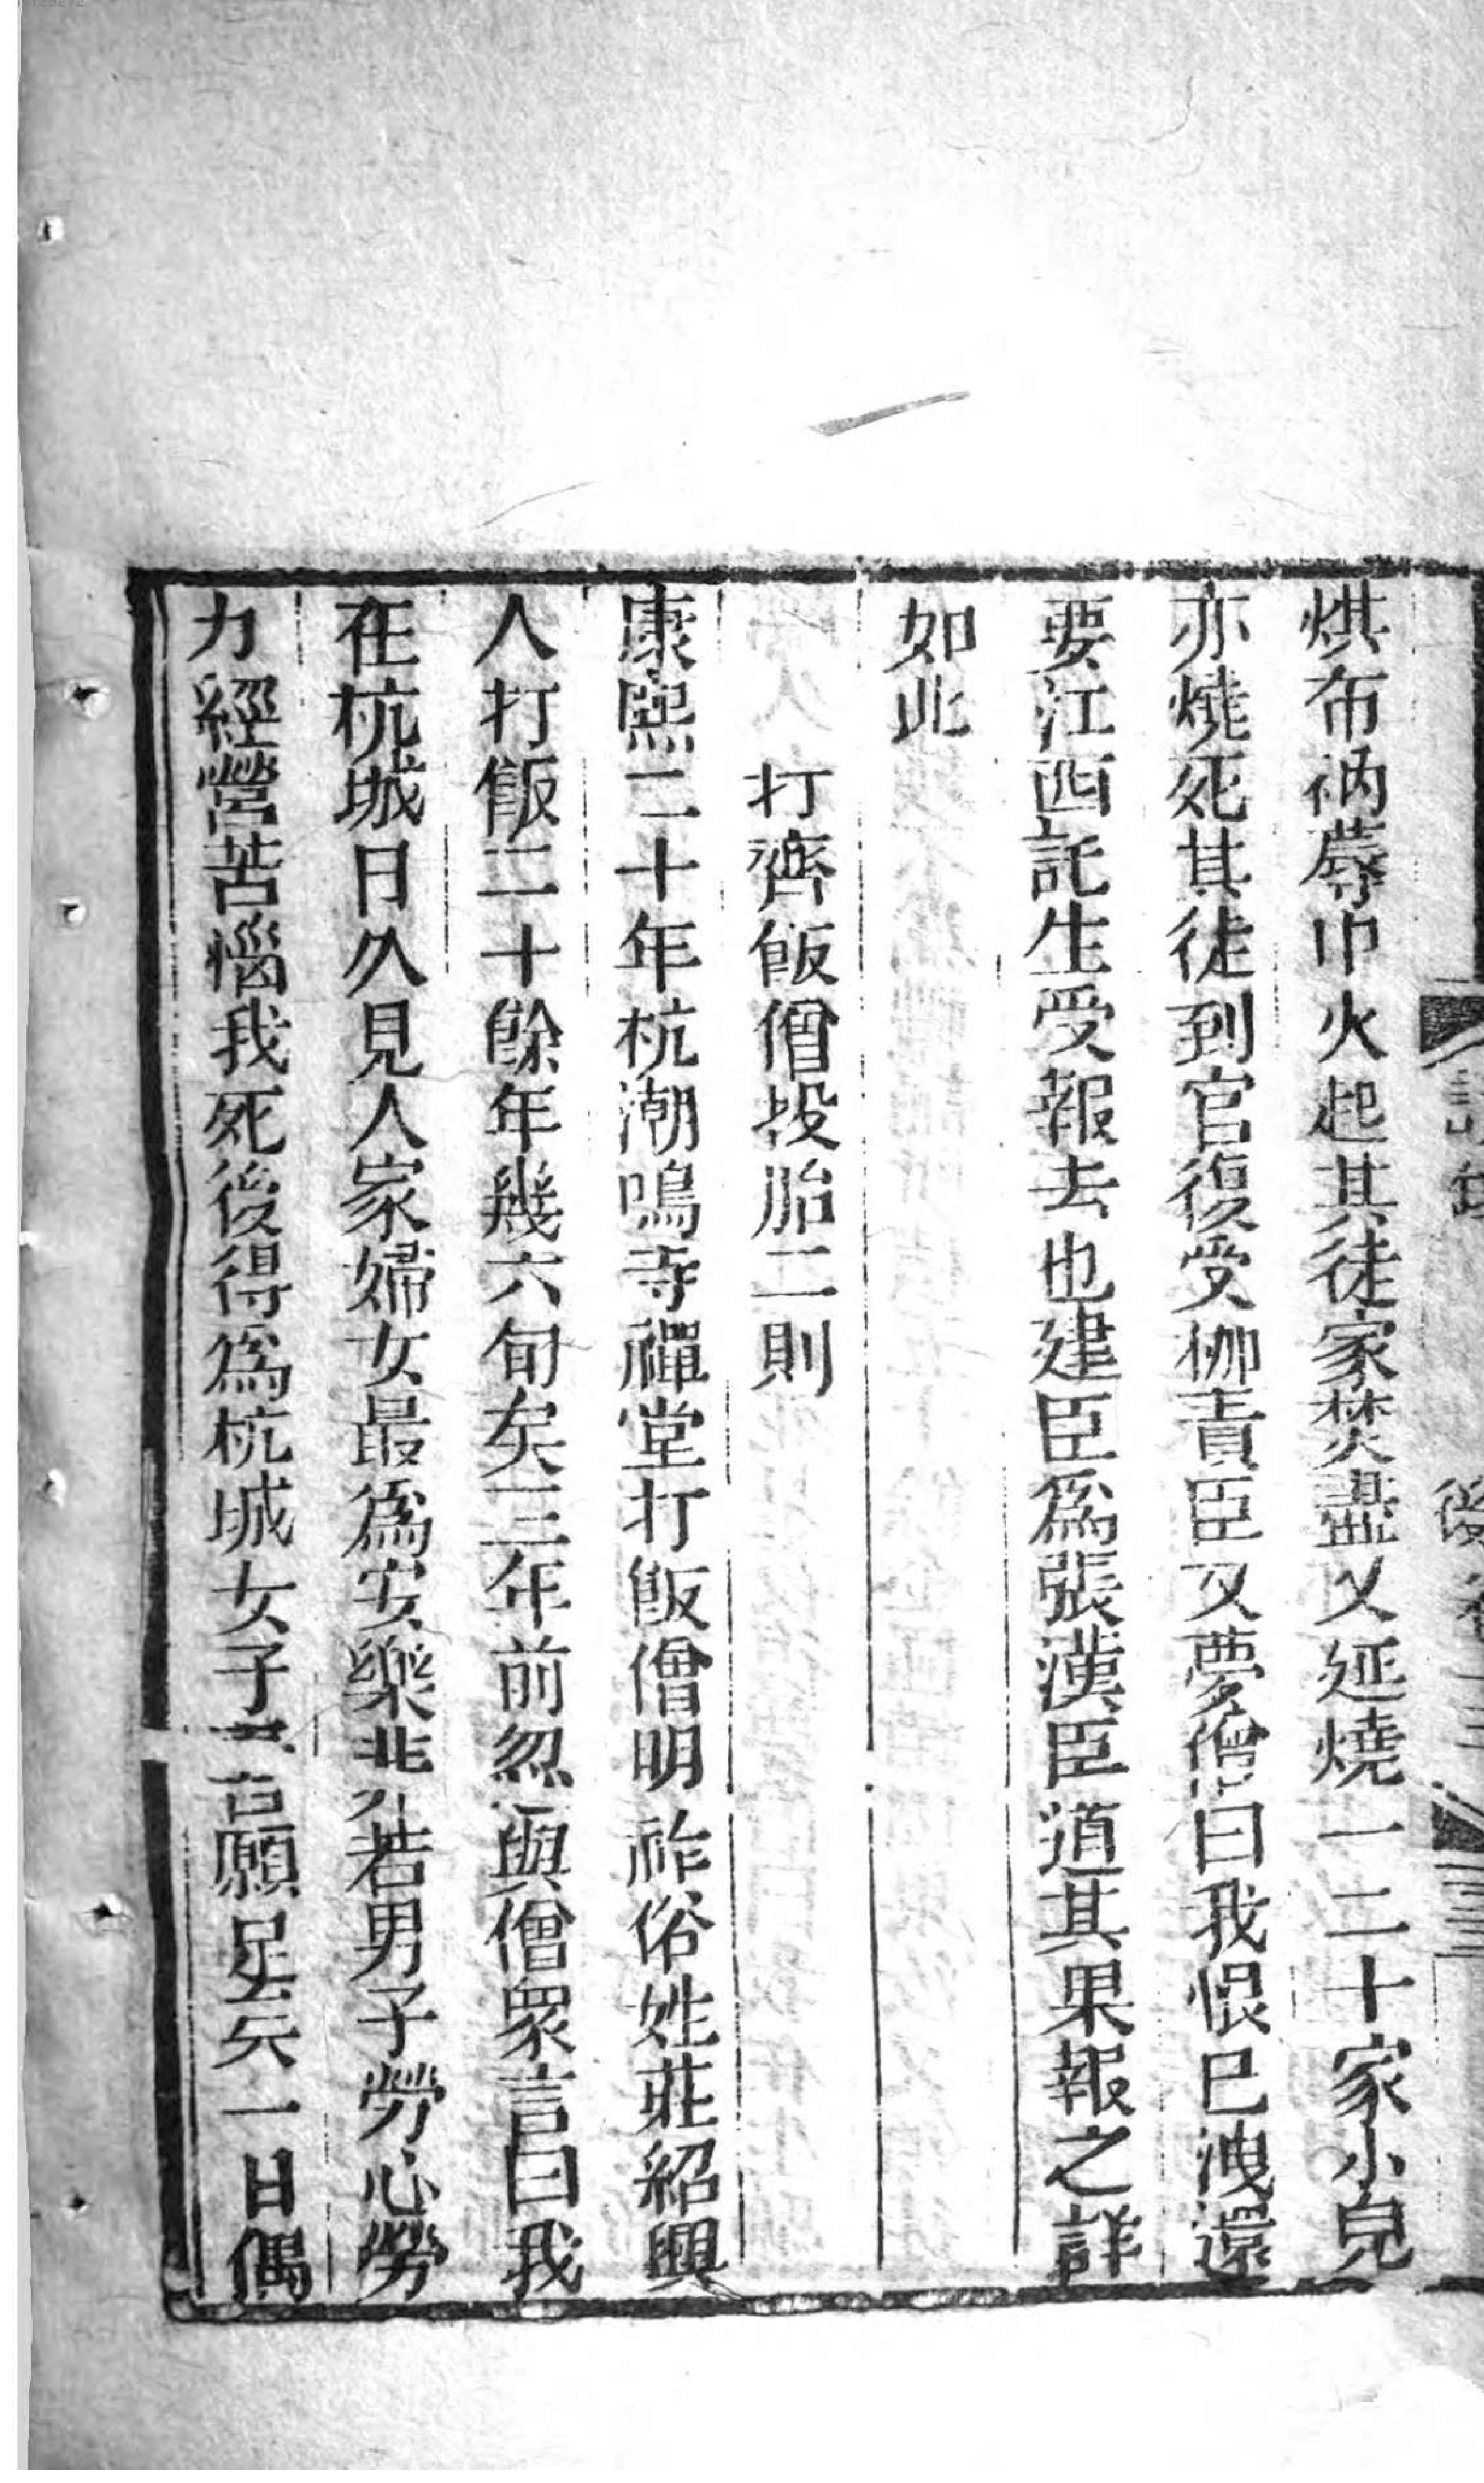 烘布衲蓐中火起其徒家焚盡又延燒一二十家小兒
亦燒死其徒到官復受枷責臣又夢僧曰我恨已洩還
要江西託生受報去也建臣為張漢臣道其果報之詳
如此
打齊飯僧投胎二則
康熙二十年杭潮鳴寺禪堂打飯僧明祚俗姓莊紹興
人打飯二十餘年幾六旬矣三年前忽與僧眾言曰我
在杭城日久見人家婦女最為安樂非若男子勞心勞
力經營苦惱我死後得為杭城女子吾願足矣一日偶